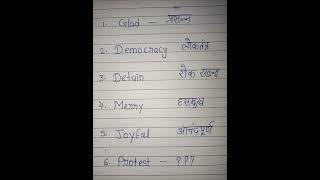 1. Glad — प्रसन्न
2. Democracy लोकतंत्र
3. Detain रोक रखना
4. Merry हसमुख
5. Joyful आनंदपूर्ण
6. Protest — ???